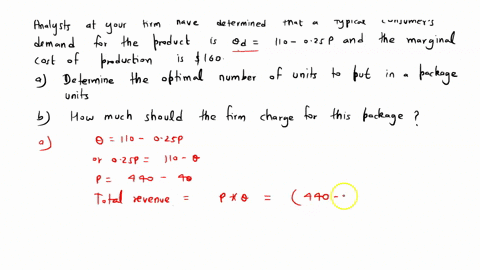 Analysts at your firm have determined that a typical consumer's
demand for the product is Qd = 110 - 0.25P and the marginal
cost of production is $160.
a) Determine the optimal number of units to put in a package
units
b) How much should the firm charge for this package ?
a) Q = 110 - 0.25P
or 0.25P = 110 - Q
P = 440 - 4Q
Total revenue = P * Q = (440 -